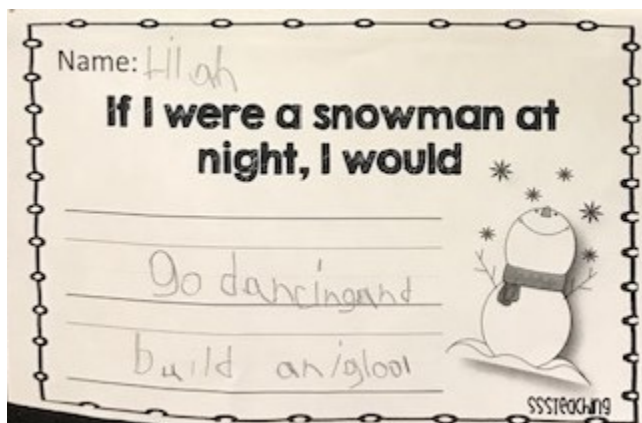 Name:
If I were a snowman at
night, I would
go dancingand
build an igloo
SSSTeaching